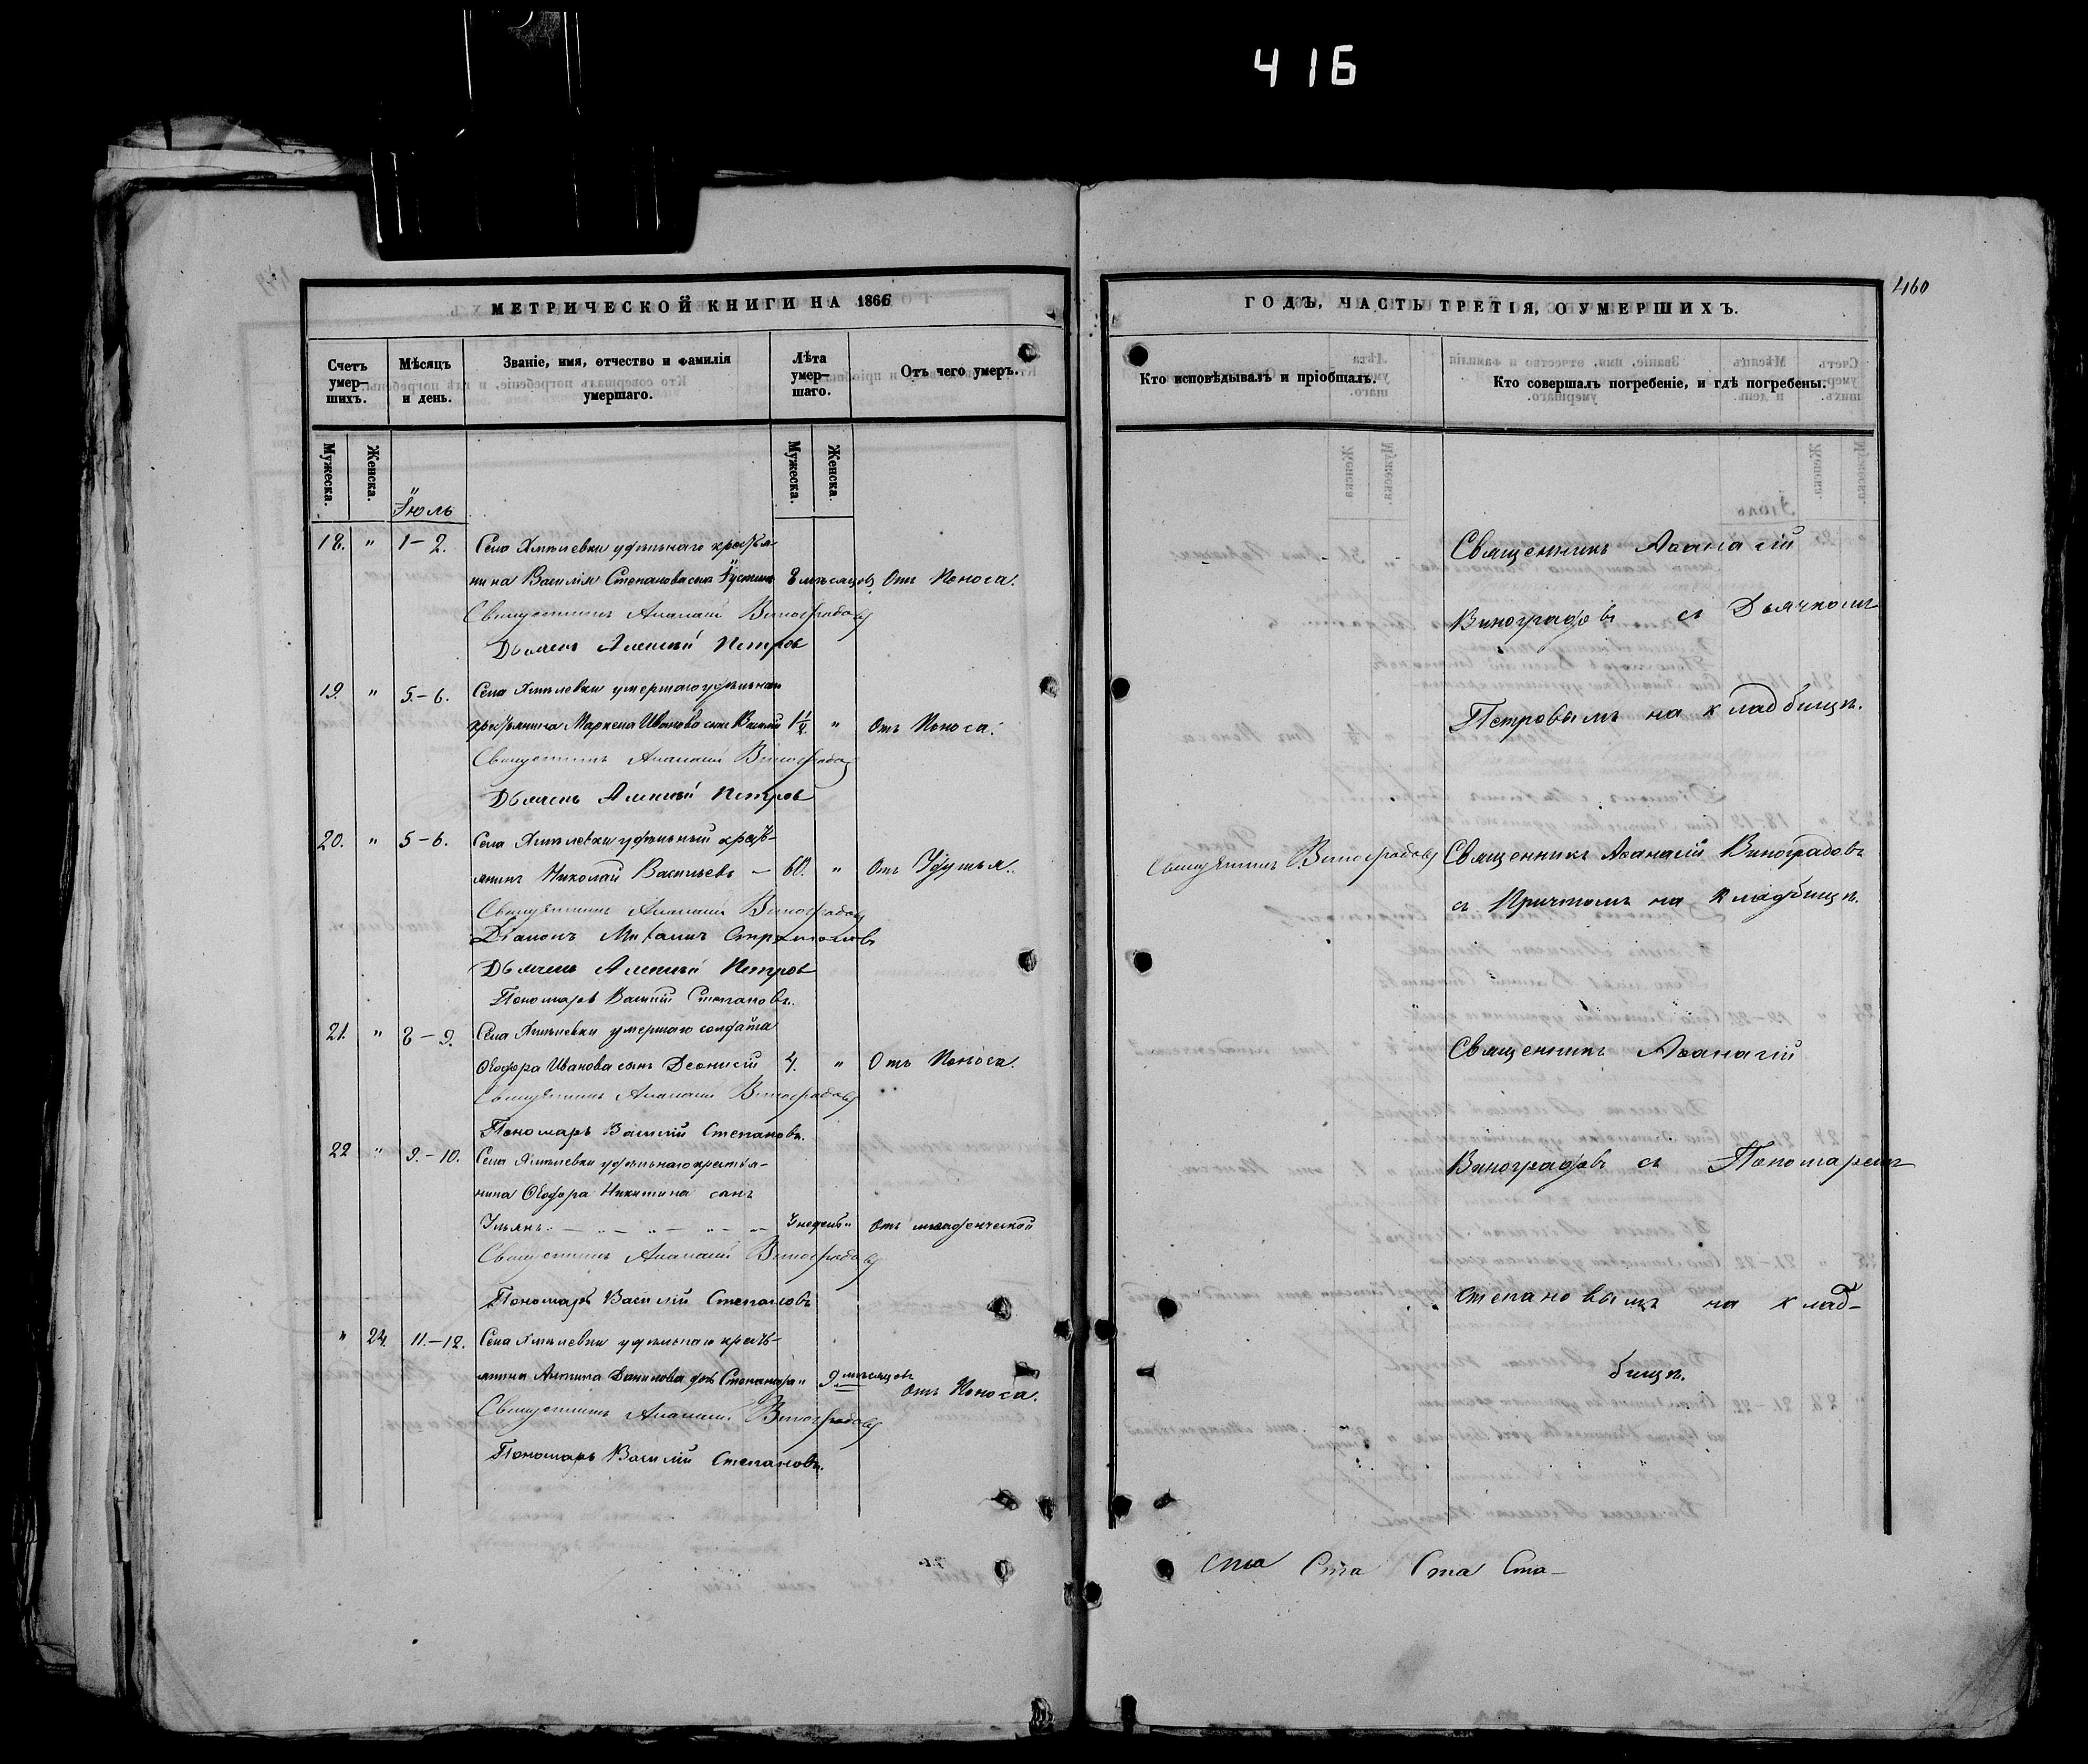 416
460
МЕТРИЧЕСКОЙ КНИГИ НА 1866
ГОДЪ, ЧАСТЬ ТРЕТІЯ, О УМЕРШИХЪ.
Счетъ умер-шихъ.
Мѣсяцъ и день.
Званіе, имя, отчество и фамилія умершаго.
Лѣта умер-шаго.
Отъ чего умеръ.
Кто исповѣдывалъ и пріобщалъ.
Кто совершалъ погребеніе, и гдѣ погребены.
Мужеска.
Женска.
Мужеска.
Женска.
Іюль
18. " 1-2. Села удѣльнаго крестья-
нина Василія Степанова сынъ Іустинъ 8 мѣсяцовъ Отъ Поноса.
Священникъ Аѳанасій Виноградовъ
Дьячекъ Алексѣй Петровъ
19. " 5-6. Села умершаго удѣльнаго
крестьянина Маркела Иванова сынъ Василій 1 1/2 " Отъ Поноса.
Священникъ Аѳанасій Виноградовъ
Дьячекъ Алексѣй Петровъ
20. " 5-6. Села удѣльный кресть-
янинъ Николай Васильевъ — 60. " Отъ Удушья.
Священникъ Аѳанасій Виноградовъ
Діаконъ
Дьячекъ Алексѣй Петровъ
Пономарь Василій Степановъ.
21. " 8-9. Села умершаго солдата
Ѳеодора Иванова сынъ Деонисій 4. " Отъ Поноса.
Священникъ Аѳанасій Виноградовъ
Пономарь Василій Степановъ.
22 " 9.-10. Села удѣльнаго крестья-
нина Ѳеодора Никитина сынъ
Ульянъ. 3 недѣль " Отъ младенческой
Священникъ Аѳанасій Виноградовъ
Пономарь Василій Степановъ
" 24. 11-12. Села удѣльнаго кресть-
янина Данилова дочь Степанида " 9 мѣсяцовъ Отъ Поноса.
Священникъ Аѳанасій Виноградовъ
Пономарь Василій Степановъ.
Священникъ Аѳанасій
Виноградовъ съ Дьячкомъ
Петровымъ на кладбищѣ.
Священникъ Виноградовъ
Священникъ Аѳанасій Виноградовъ
съ Причтомъ на Кладбищѣ.
Священникъ Аѳанасій
Виноградовъ съ Пономаремъ
Степановымъ на клад-
бищѣ.
Ста Ста Ста Ста-